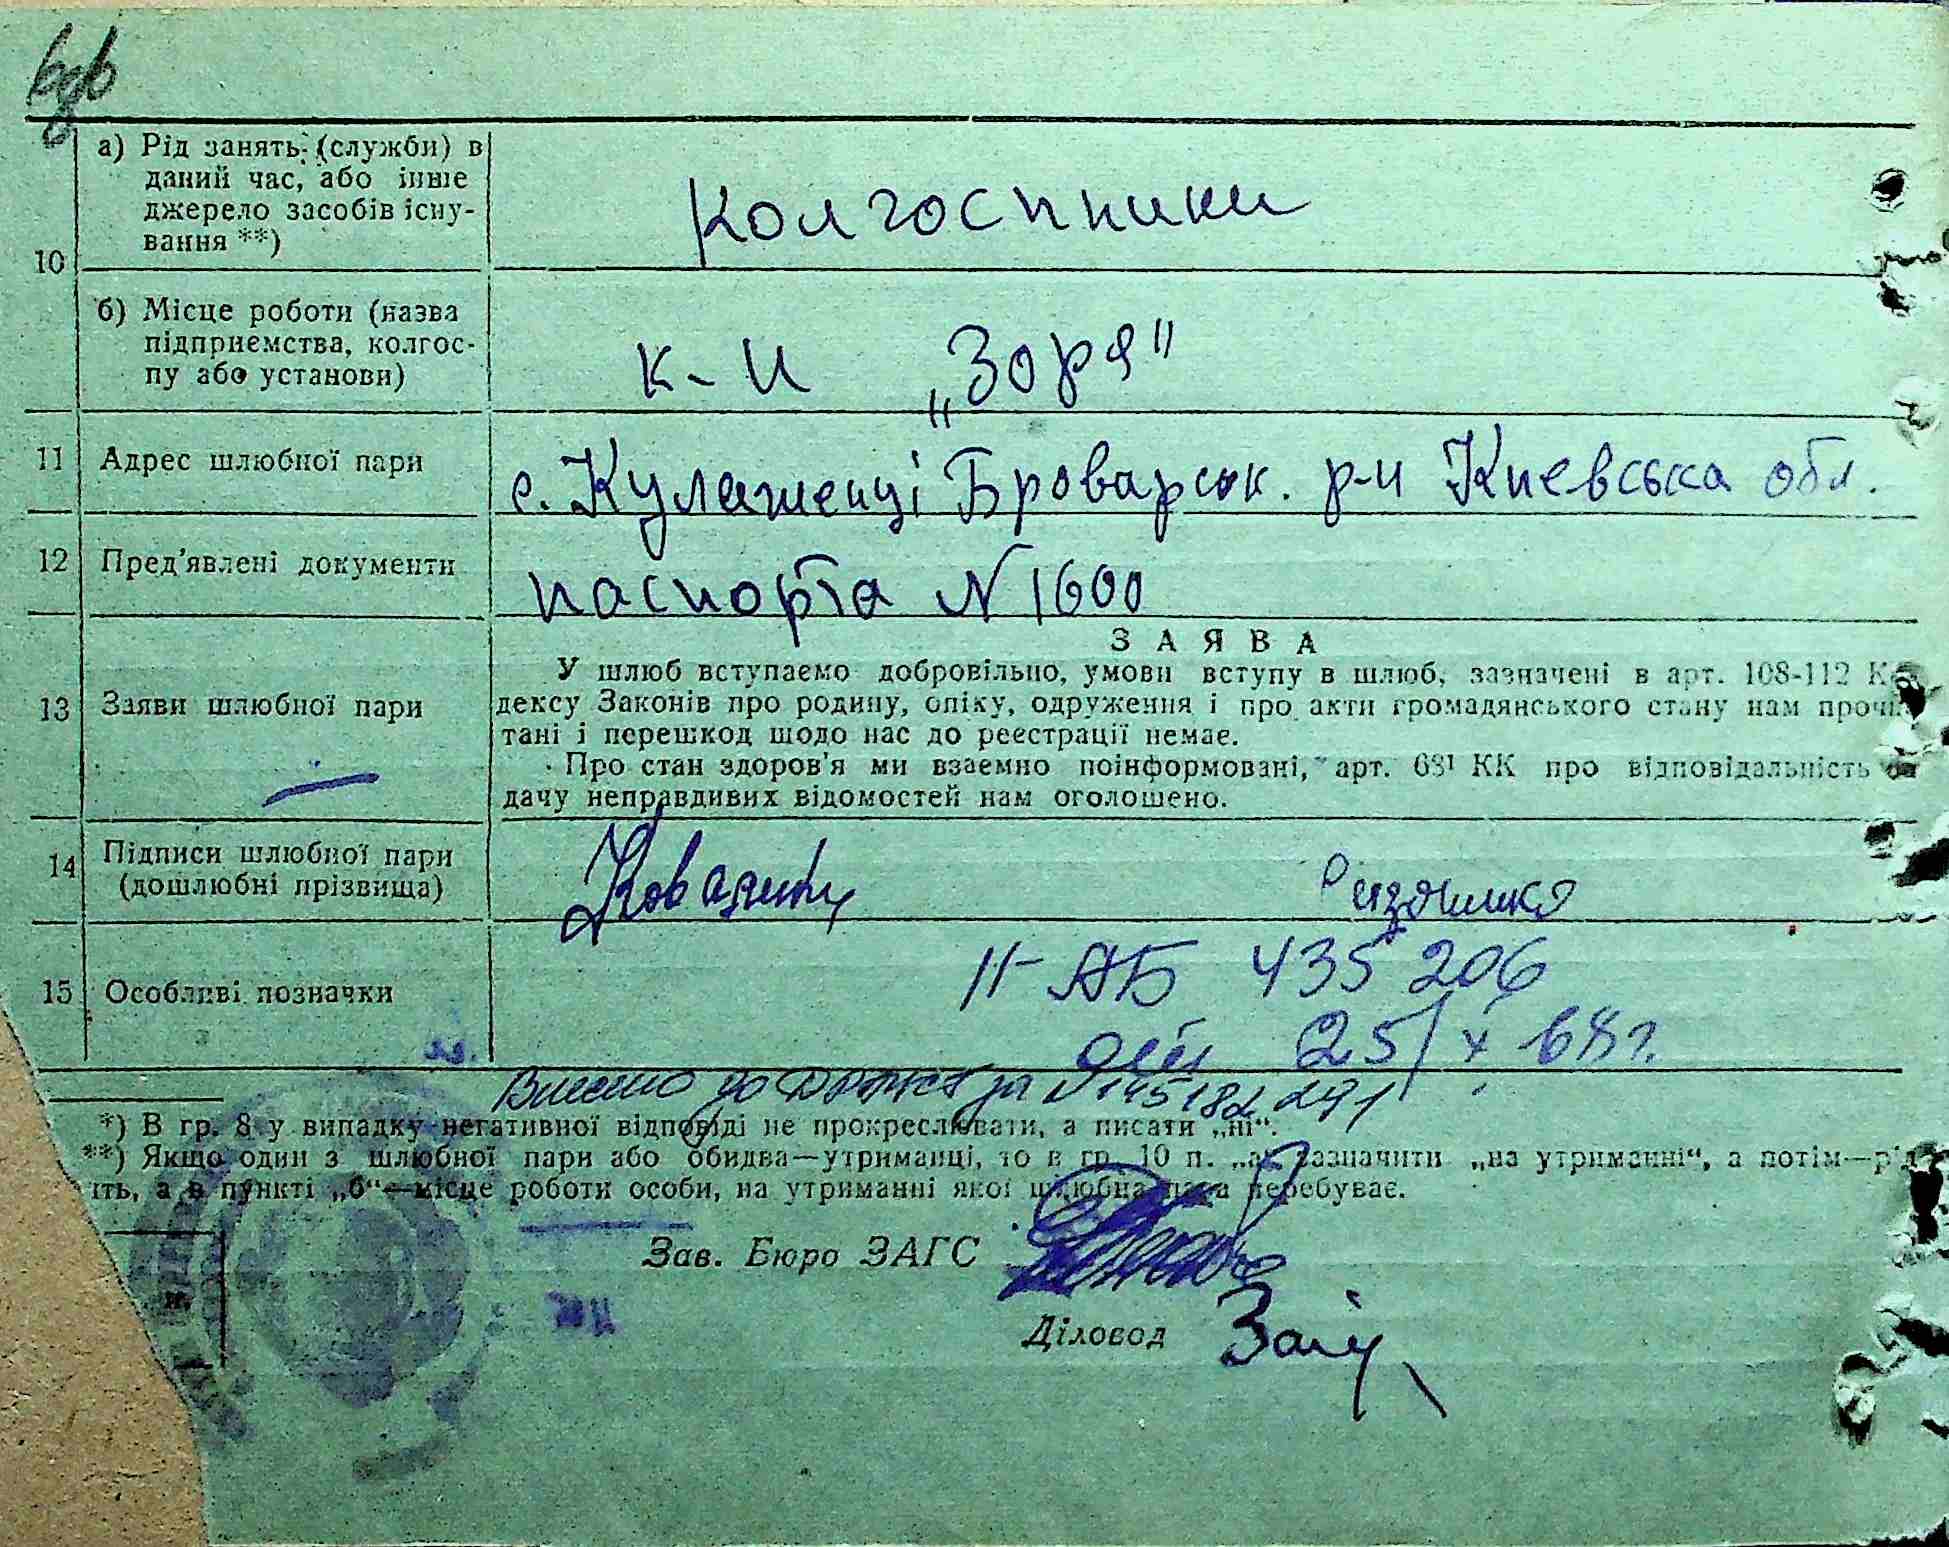 а) Рід занять (служби) в
даний час, або інше
джерело засобів існу-
вання **)
Колгоспники
10
б) Місце роботи (назва
підприємства, колгос-
пу або установи)
к-п „Зоря"
11 Адрес шлюбної пари
с. Кулаженці Броварськ. р-н Киевська обл.
12 Пред'явлені документи
паспорта N 1600
ЗАЯВА
13 Заяви шлюбної пари
У шлюб вступаємо добровільно, умови вступу в шлюб, зазначені в арт. 108-112 Ко-
дексу Законів про родину, опіку, одруження і про акти громадянського стану нам прочи-
тані і перешкод щодо нас до реєстрації немає.
Про стан здоров'я ми взаємно поінформовані, арт. 68¹ КК про відповідальність за
дачу неправдивих відомостей нам оголошено.
14 Підписи шлюбної пари
(дошлюбні прізвища)
15 Особливі позначки
II-АБ 435206
25/X 68 г.
Внесено до ДРАЦС за N 145182 291
*) В гр. 8 у випадку негативної відповіді не прокреслювати, а писати „ні“.
**) Якщо один з шлюбної пари або обидва—утриманці, то в гр. 10 п. „а“ зазначити „на утриманні“, а потім—р
ть, а в пункті „б“—місце роботи особи, на утриманні якої шлюбна пара перебуває.
Зав. Бюро ЗАГС
Діловод